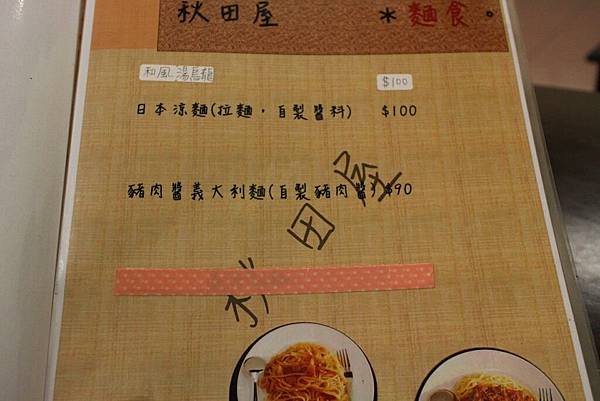 秋田屋 * 麵食。
和風湯烏龍 $100
日本涼麵(拉麵，自製醬料) $100
豬肉醬義大利麵(自製豬肉醬) $90
秋田屋